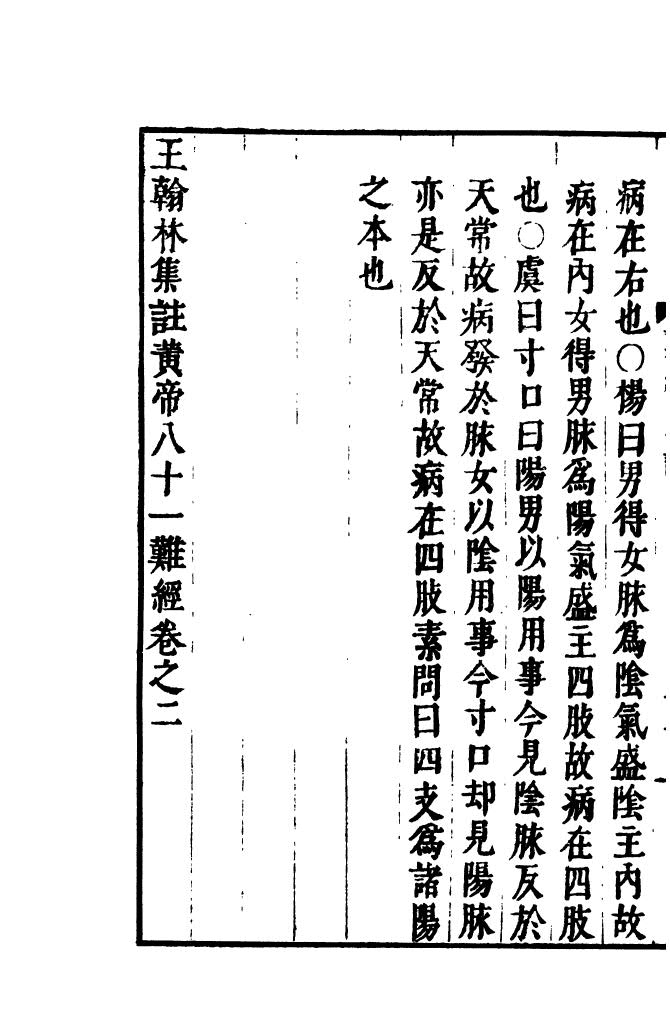 病在右也○楊曰男得女脉爲陰氣盛陰主內故
病在內女得男脉爲陽氣盛主四肢故病在四肢
也○虞曰寸口曰陽男以陽用事今見陰脉反於
天常故病發於脉女以陰用事今寸口却見陽脉
亦是反於天常故病在四肢素問曰四支爲諸陽
之本也
王翰林集註黃帝八十一難經卷之二